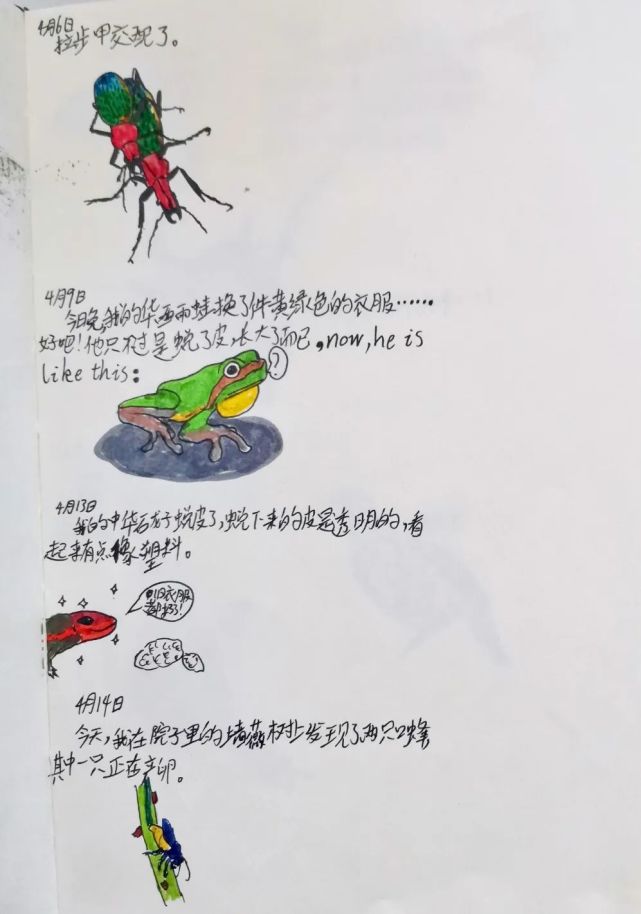 4月6日
拉步甲交配了。
4月9日
今日晚,我的华西雨蛙换了件黄绿色的衣服……
好吧!他只不过是蜕了皮,长大了而已,now,he is
like this:
?
4月13日
我的中华石龙子蜕皮了,蜕下来的皮是透明的,看
起来有点像塑料。
旧衣服
都扔了!
4月14日
今天,我在院子里的蔷薇树上发现了两只叶蜂
其中一只正在产卵。